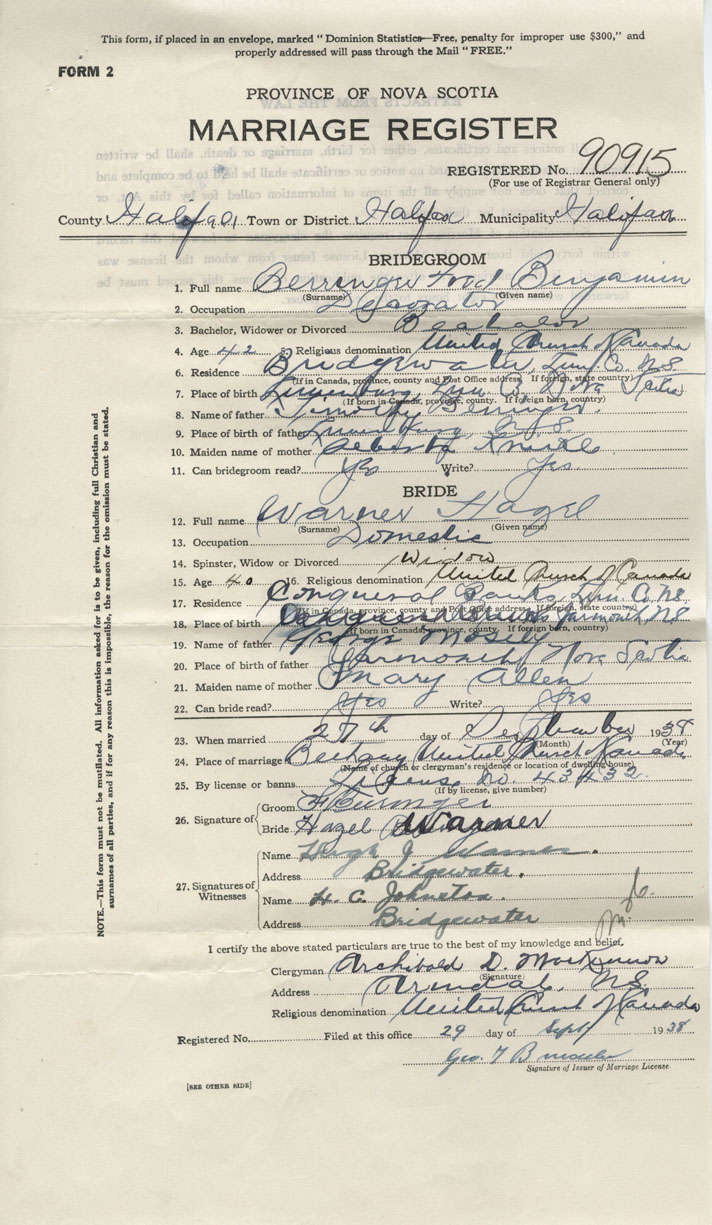 This form, if placed in an envelope, marked "Dominion Statistics—Free, penalty for improper use $300," and
properly addressed will pass through the Mail "FREE."
FORM 2
PROVINCE OF NOVA SCOTIA
MARRIAGE REGISTER
REGISTERED No. 90915
(For use of Registrar General only)
County Halifax Town or District Halifax Municipality Halifax
BRIDEGROOM
1. Full name Berringer Fred Benjamin
(Surname) (Given name)
2. Occupation Decorator
3. Bachelor, Widower or Divorced Bachelor
4. Age 42 5. Religious denomination United Church of Canada
6. Residence Bridgewater, Lun. Co. N.S.
(If in Canada, province, county and Post Office address. If foreign, state country)
7. Place of birth Lunenburg, Lun. Co. Nova Scotia
(If born in Canada, province, county. If foreign born, country)
8. Name of father Timothy Berringer.
9. Place of birth of father Lunenburg, N.S.
10. Maiden name of mother
11. Can bridegroom read? Yes Write? Yes
BRIDE
12. Full name Warner Hazel
(Surname) (Given name)
13. Occupation Domestic
14. Spinster, Widow or Divorced Widow
15. Age 40 16. Religious denomination United Church of Canada
17. Residence Conquerall Banks, Lun. Co. NS
(If in Canada, province, county and Post Office address. If foreign, state country)
18. Place of birth Yarmouth NS
(If born in Canada, province, county. If foreign born, country)
19. Name of father George
20. Place of birth of father Yarmouth, Nova Scotia
21. Maiden name of mother Mary Allen
22. Can bride read? Yes Write? Yes
23. When married 27th day of September 1938
(Month) (Year)
24. Place of marriage Bethany United Church of Canada
(Name of church or clergyman's residence or location of dwelling house)
25. By license or banns License No. 43432.
(If by license, give number)
26. Signature of
Groom F Berringer
Bride Hazel Warner
27. Signatures of Witnesses
Name Hugh J Warner.
Address Bridgewater.
Name H. C. Johnston.
Address Bridgewater
I certify the above stated particulars are true to the best of my knowledge and belief.
Clergyman Archibald D. MacKinnon
(Signature)
Address Armdale, N.S.
Religious denomination United Church of Canada
Registered No. Filed at this office 29 day of Sept 1938
Geo. T B
Signature of Issuer of Marriage License
[SEE OTHER SIDE]
NOTE.—This form must not be mutilated. All information asked for is to be given, including full Christian and
surnames of all parties, and if for any reason this is impossible, the reason for the omission must be stated.